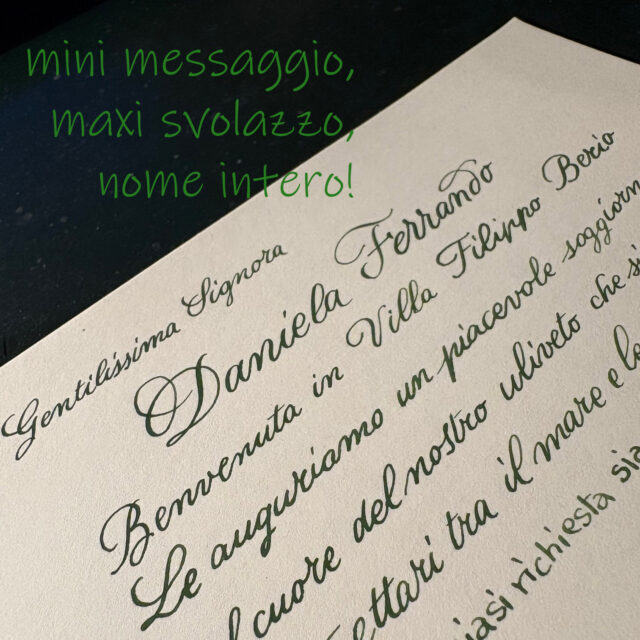 mini messaggio,
maxi svolazzo,
nome intero!
Gentilissima Signora
Daniela Ferrando
Benvenuta in Villa Filippo Berio
Le auguriamo un piacevole soggiorn
l cuore del nostro uliveto che si
ettari tra il mare e le
iasi richiesta sia